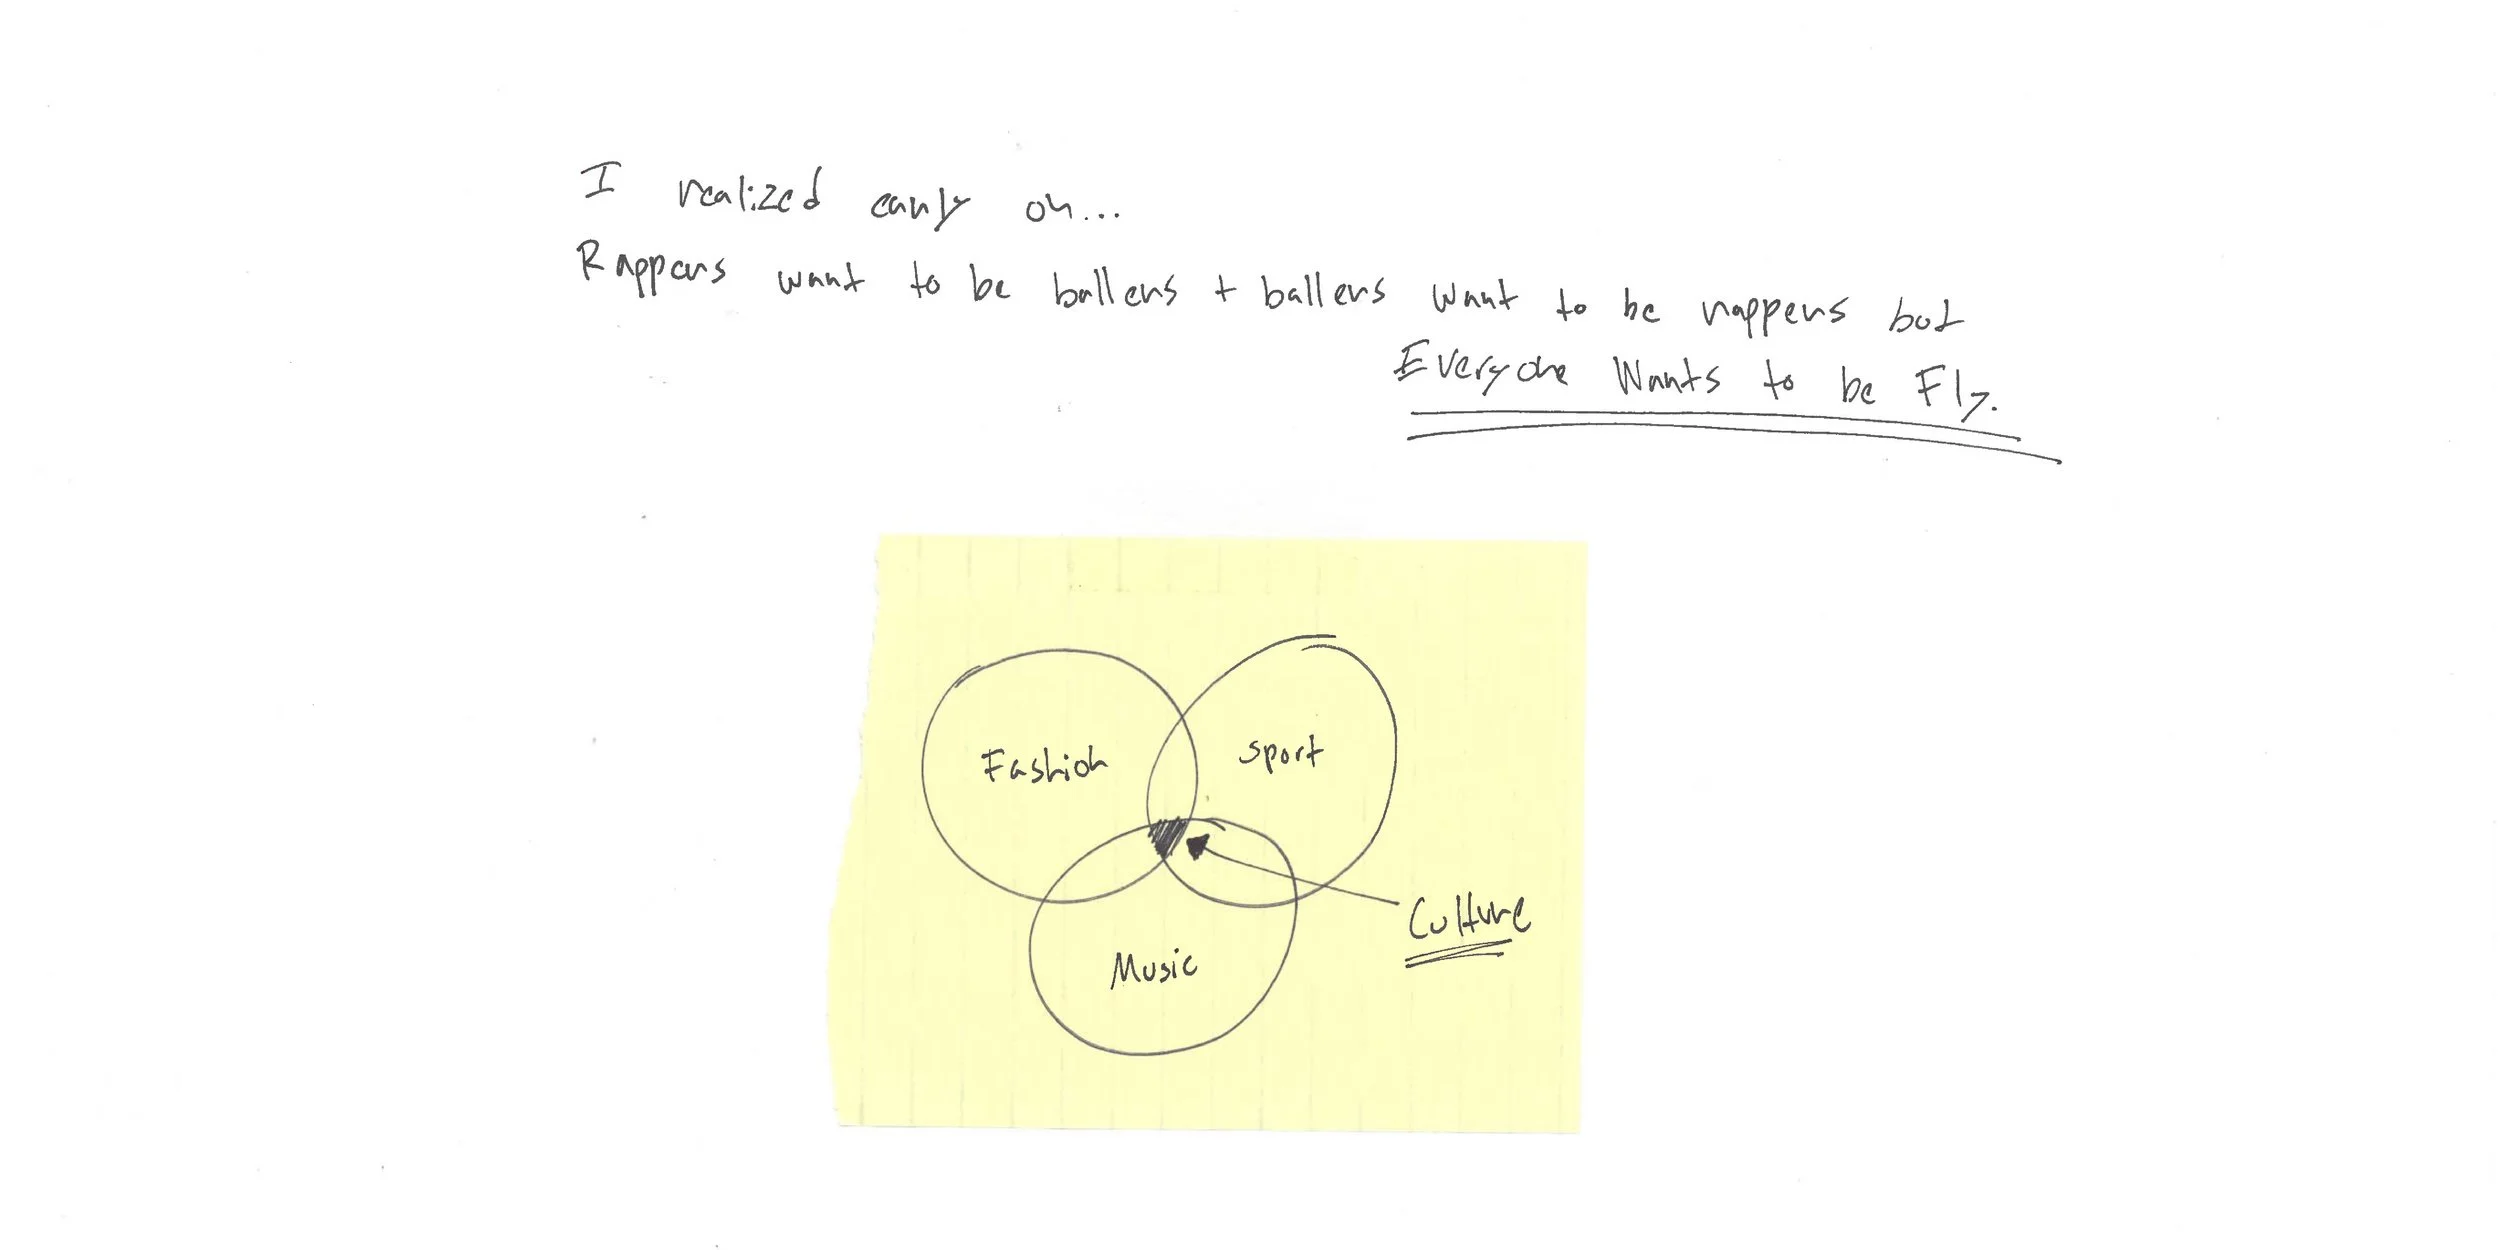 I realized early on...
Rappers want to be ballers + ballers want to be rappers but
Everyone Wants to be Fly.
Fashion
Sport
Music
Culture